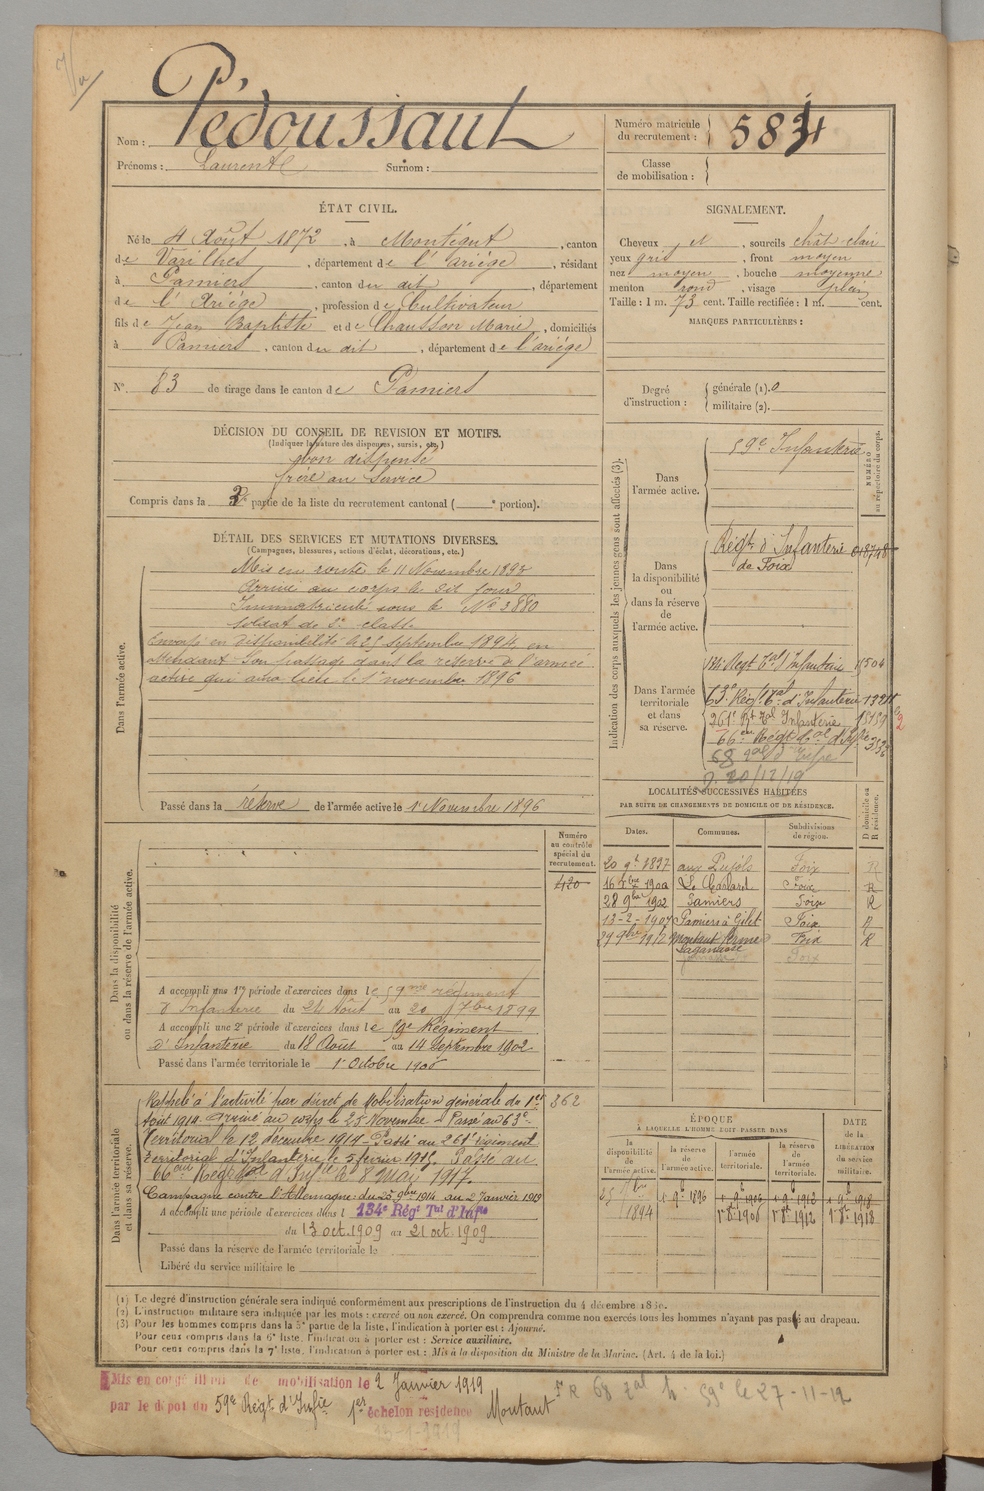 Pédoussaut
Nom :
Prénoms : Laurent
Surnom :
Numéro matricule du recrutement : 584
Classe de mobilisation :
ÉTAT CIVIL.
Né le 4 Août 1872, à Montégut, canton
de Varilhes, département de l'Ariége, résidant
à Pamiers, canton du dit, département
de l'Ariége, profession de Cultivateur
fils de Jean Baptiste et de Chausson Marie, domiciliés
à Pamiers, canton du dit, département de l'ariége
N° 83 de tirage dans le canton de Pamiers
SIGNALEMENT.
Cheveux et, sourcils chât-clair
yeux gris, front moyen
nez moyen, bouche moyenne
menton rond, visage plein
Taille : 1 m. 73 cent. Taille rectifiée : 1 m. cent.
MARQUES PARTICULIÈRES :
Degré d'instruction : générale (1). 0
militaire (2).
DÉCISION DU CONSEIL DE REVISION ET MOTIFS.
(Indiquer la nature des dispenses, sursis, etc.)
bon dispensé
frère au Service
Compris dans la partie de la liste du recrutement cantonal ( portion).
DÉTAIL DES SERVICES ET MUTATIONS DIVERSES.
(Campagnes, blessures, actions d'éclat, décorations, etc.)
Dans l'armée active.
Mis en route le 11 Novembre 1893
Arrivé au corps le dit jour
Immatriculé sous le N° 3880
soldat de 2e classe
Envoyé en disponibilité le 25 septembre 1894, en
attendant son passage dans la réserve de l'armée
active qui aura lieu le 1er novembre 1896
Passé dans la réserve de l'armée active le 1er Novembre 1896
Indication des corps auxquels les jeunes gens sont affectés (3).
NUMÉRO au répertoire du corps.
Dans l'armée active.
59e Infanterie
Dans la disponibilité ou dans la réserve de l'armée active.
Régt d'Infanterie
de Foix
Dans l'armée territoriale et dans sa réserve.
134e Régt Tal d'Infanterie 1504
63e Régt Tal d'Infanterie
261e Rt Tal Infanterie
66e Régt Tal d'Infie
68 Tal d'Infie
20/12/19
LOCALITÉS SUCCESSIVES HABITÉES
PAR SUITE DE CHANGEMENTS DE DOMICILE OU DE RÉSIDENCE.
Dates. Communes. Subdivisions de région. D domicile ou R résidence.
20 9bre 1897 aux Pujols Foix R
1900 Le Carlaret Foix R
28 9bre 1902 Pamiers Foix R
13-2-1907 Pamiers à Gilet Foix R
29 9bre 1912 Montaut Ferme Foix R
Lagarrosse
Foix
Dans la disponibilité ou dans la réserve de l'armée active.
Numéro au contrôle spécial du recrutement.
420
A accompli une 1re période d'exercices dans le 59me régiment
d'Infanterie du 24 Août au 20 7bre 1899
A accompli une 2e période d'exercices dans le 59e Régiment
d'Infanterie du 18 Août au 14 Septembre 1902
Passé dans l'armée territoriale le 1er Octobre 1906
Dans l'armée territoriale et dans sa réserve.
Rappelé à l'activité par décret de Mobilisation générale du 1er 362
Août 1914. Arrivé au corps le 25 Novembre. Passé au 63e
Territorial le 12 décembre 1914. Passé au 261e régiment
territorial d'Infanterie le 5 février 1915. Passé au
66eme Régt Tal d'Infie le 8 Mai 1917.
Campagne contre l'Allemagne : du 25 9bre 1914 au 2 Janvier 1919
A accompli une période d'exercices dans l 134e Régt Tal d'Infie
du 13 oct. 1909 au 21 oct. 1909
Passé dans la réserve de l'armée territoriale le
Libéré du service militaire le
ÉPOQUE
A LAQUELLE L'HOMME DOIT PASSER DANS
la disponibilité de l'armée active. la réserve de l'armée active. l'armée territoriale. la réserve de l'armée territoriale. DATE de la LIBÉRATION du service militaire.
25 7bre 1894 1er 9bre 1896 1er 9 1906 1er 9 1912 1er 9 1918
1er 8bre 1906 1er 8bre 1912 1er 8bre 1918
(1) Le degré d'instruction générale sera indiqué conformément aux prescriptions de l'instruction du 4 décembre 1889.
(2) L'instruction militaire sera indiquée par les mots : exercé ou non exercé. On comprendra comme non exercés tous les hommes n'ayant pas passé au drapeau.
(3) Pour les hommes compris dans la 5e partie de la liste, l'indication à porter est : Ajourné.
Pour ceux compris dans la 6e liste, l'indication à porter est : Service auxiliaire.
Pour ceux compris dans la 7e liste, l'indication à porter est : Mis à la disposition du Ministre de la Marine. (Art. 4 de la loi.)
Mis en congé illimité de démobilisation le 2 Janvier 1919
par le dépôt du 59e Régt d'Infie 1er échelon résidence Montaut
68 Tal 59e le 27-11-19